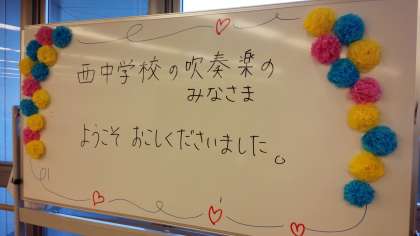 西中学校の吹奏楽の
みなさま
ようこそ おこしくださいました。